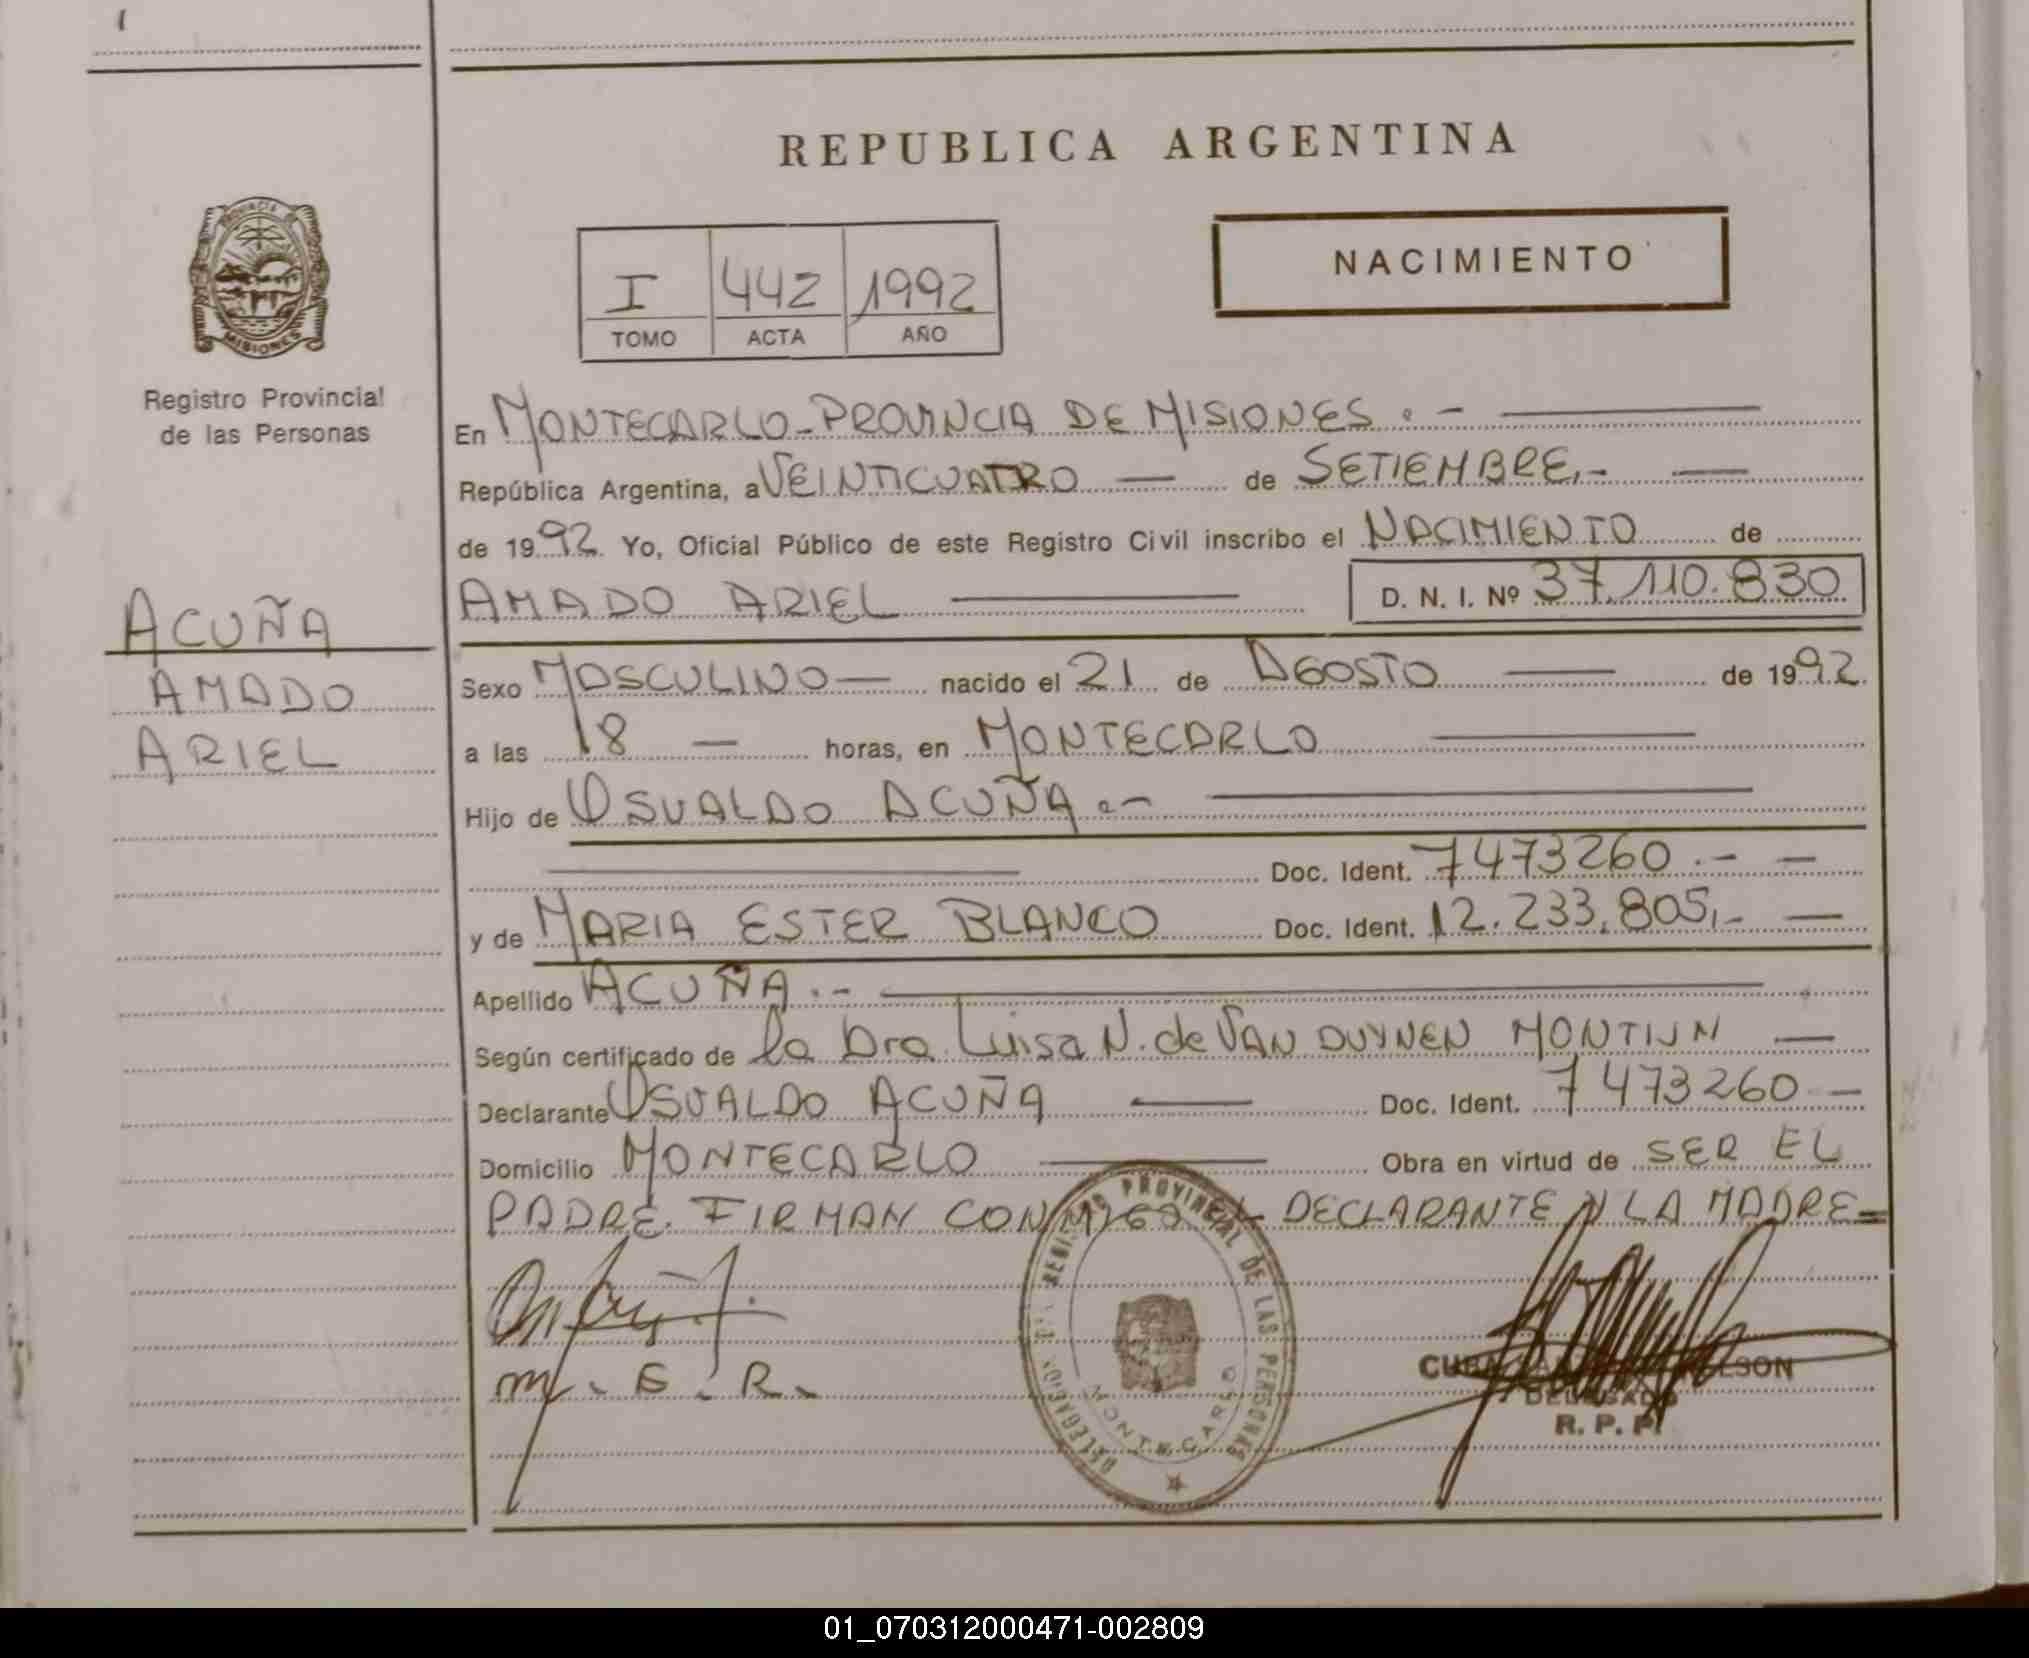 REPUBLICA ARGENTINA
NACIMIENTO
I 442 1992
TOMO ACTA AÑO
PROVINCIA
MISIONES
Registro Provincial
de las Personas
ACUÑA
AMADO
ARIEL
En MONTECARLO - PROVINCIA DE MISIONES.-
República Argentina, a VEINTICUATRO — de SETIEMBRE.- —
de 1992. Yo, Oficial Público de este Registro Civil inscribo el NACIMIENTO de
AMADO ARIEL — D. N. I. Nº 37.110.830
Sexo MASCULINO — nacido el 21 de AGOSTO — de 1992.
a las 18 — horas, en MONTECARLO —
Hijo de OSVALDO ACUÑA.- —
— Doc. Ident. 7473260.- —
y de MARIA ESTER BLANCO Doc. Ident. 12.233.805.- —
Apellido ACUÑA.- —
Según certificado de la Dra. Luisa N. de VAN DUYNEN MONTIJN —
Declarante OSVALDO ACUÑA — Doc. Ident. 7473260 —
Domicilio MONTECARLO — Obra en virtud de SER EL
PADRE. FIRMAN CONMIGO EL DECLARANTE Y LA MADRE=
REGISTRO PROVINCIAL DE LAS PERSONAS
DELEGACION
MONTECARLO
m. E. R.
DELEGADO
R. P. P.
01_070312000471-002809